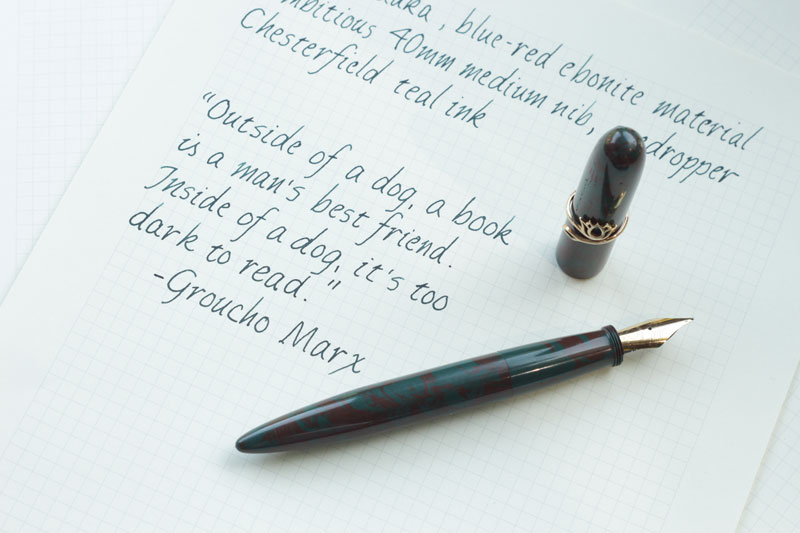 , blue-red ebonite material
ambitious 40mm medium nib,
Chesterfield teal ink
"Outside of a dog, a book
is a man's best friend.
Inside of a dog, it's too
dark to read."
-Groucho Marx